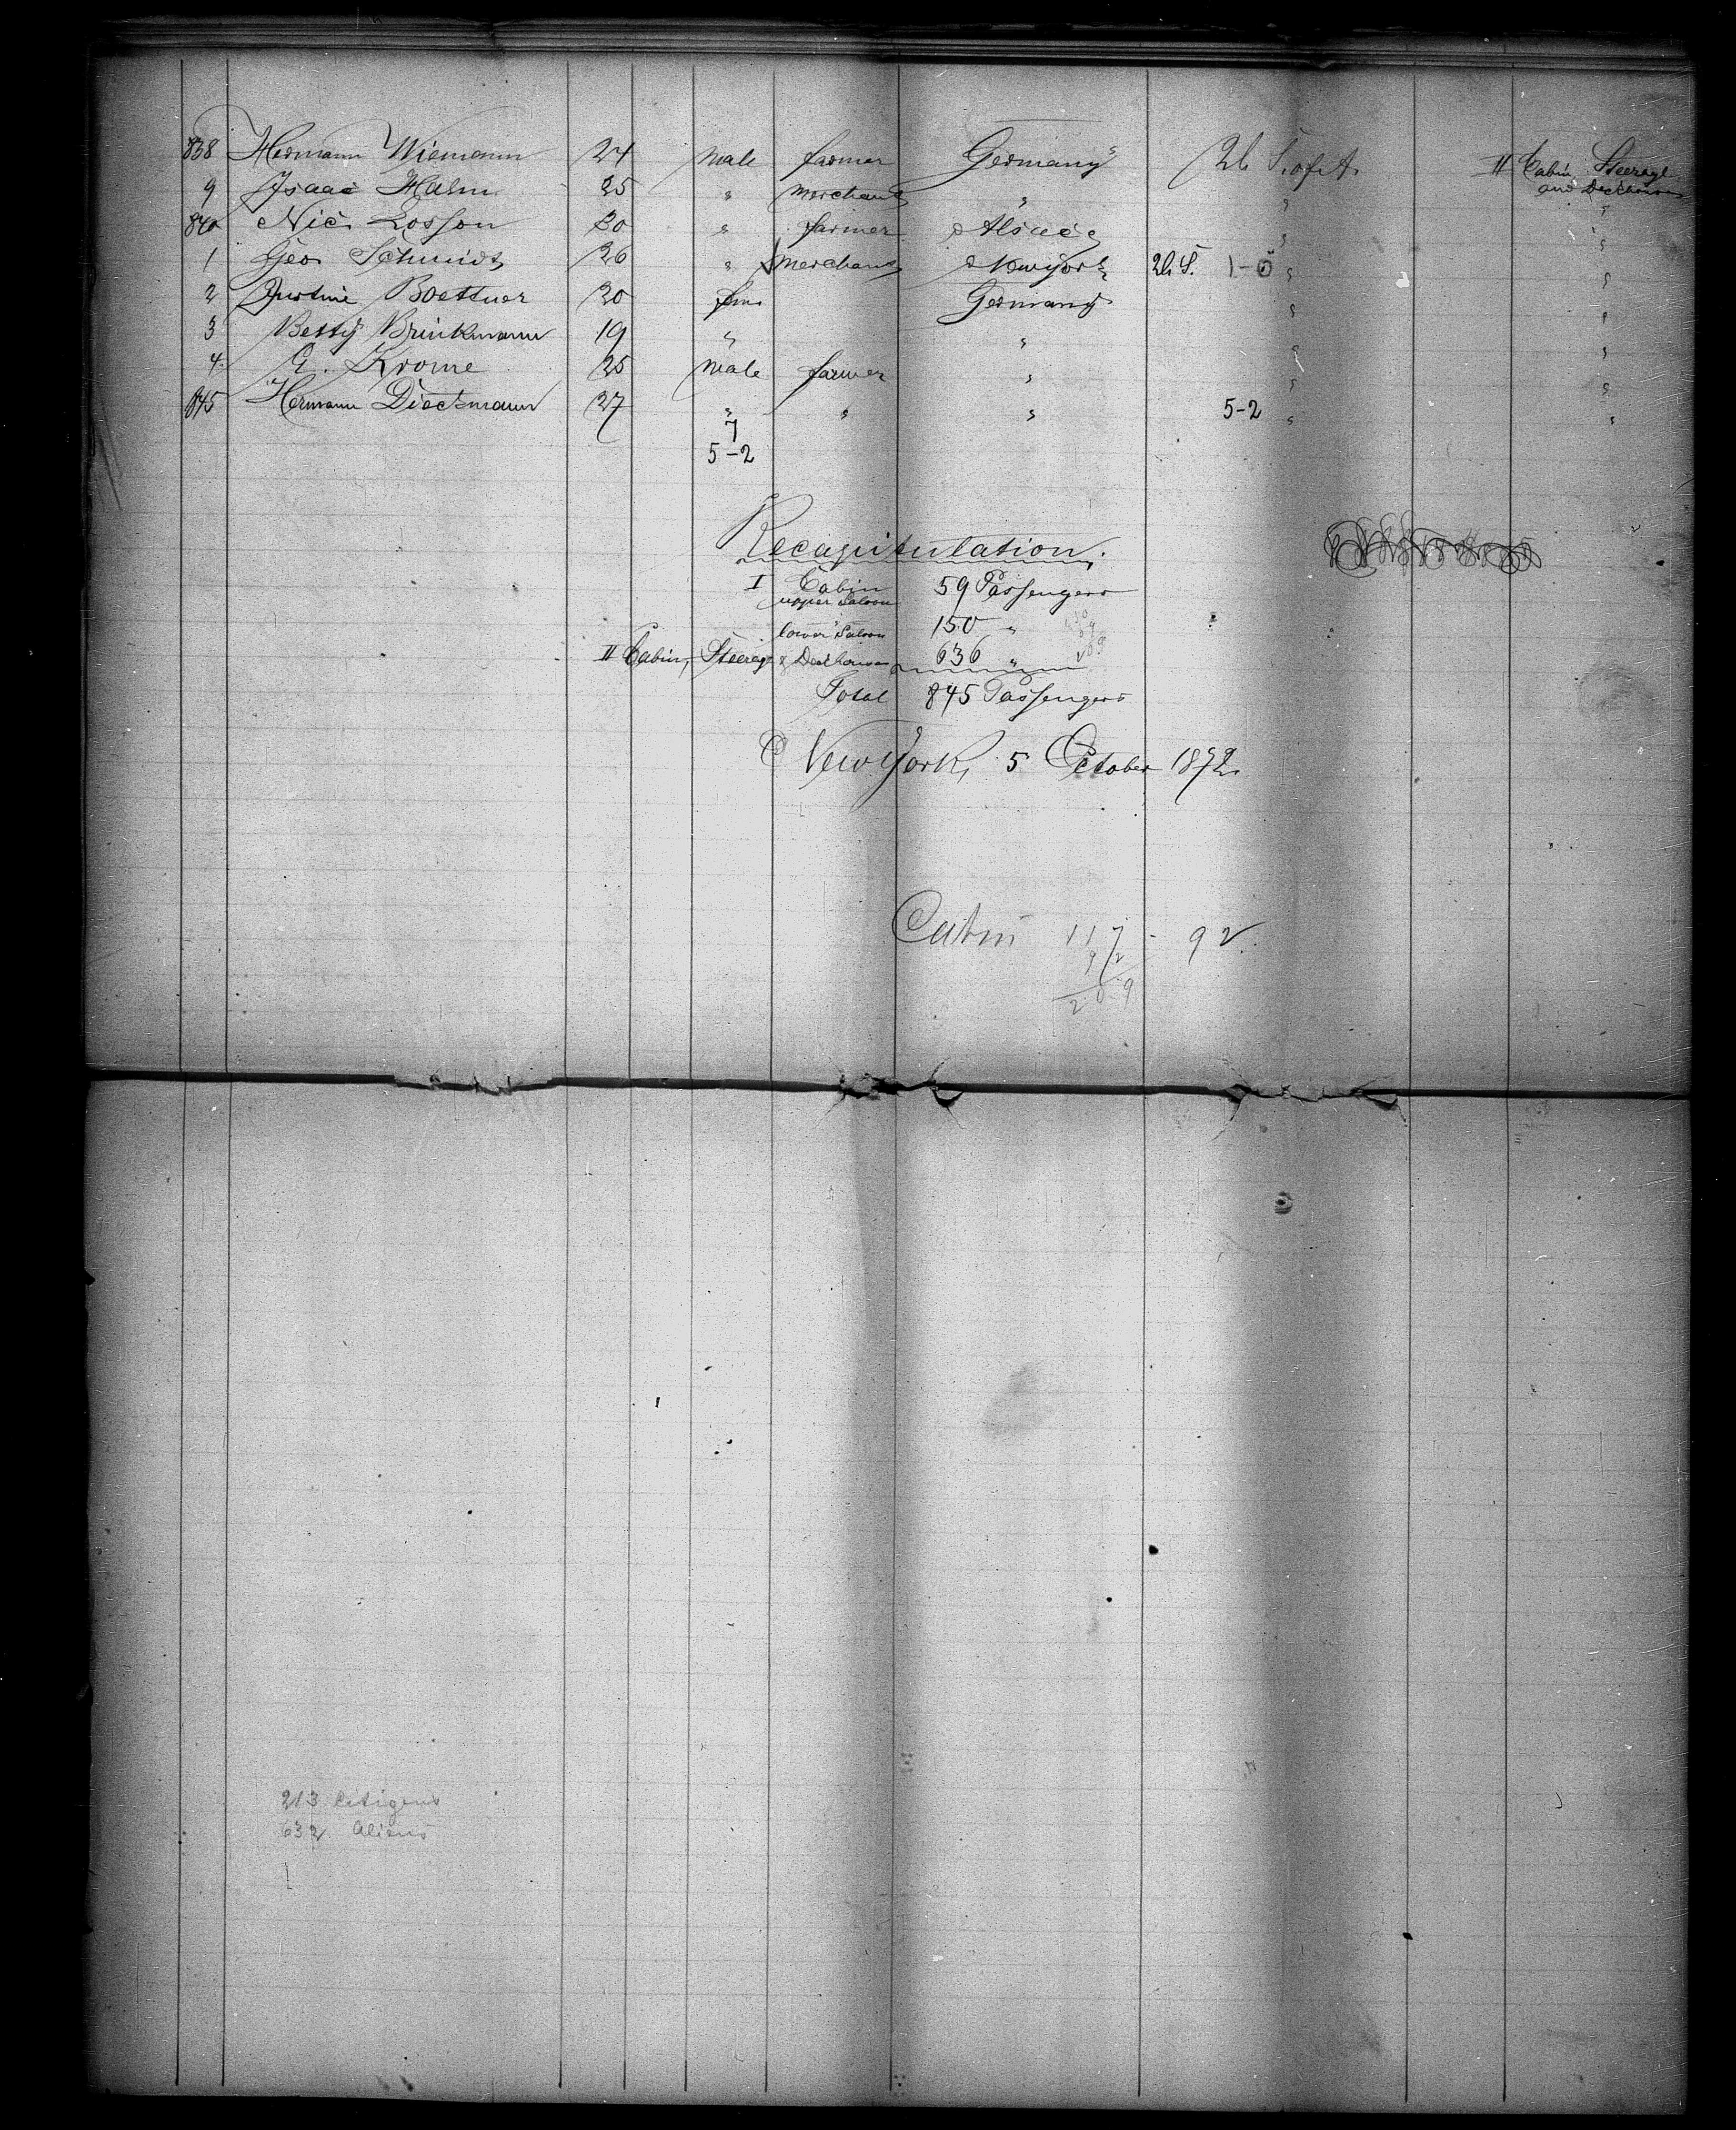 838 Hermann Wiemann 24 male farmer Germany U. S. of A. II Cabin, Steerage and Deckhouse
9 Isaac Hahn 25 " merchant " " "
840 Nic. Losson 20 " farmer Alsace " "
1 Geo. Schmidt 26 " merchant New York U. S. 1-0 " "
2 Justine Boettner 20 fem Germany " "
3 Betty Brinkmann 19 " " " "
4 G. Krome 25 male farmer " " "
845 Hermann Dieckmann 27 " " " 5-2 " "
7
5-2
Recapitulation.
I Cabin upper Saloon 59 Passengers
lower Saloon 150 "
II Cabin, Steerage & Deckhouse 636 "
Total 845 Passengers
New York, 5 October 1872.
Cabin 117 - 92
92
209
213 Citizens
632 Aliens